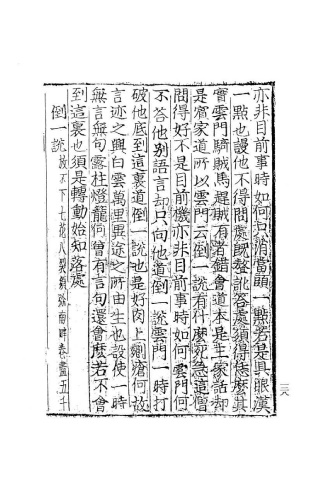 亦非目前事時如何只消當頭一點若是具眼漢
一點也謾他不得問處旣聱訛答處須得恁麼其
實雲門騎賊馬趕賊有者錯會道本是主家話却
是賓家道所以雲門云倒一說有什麼死急這僧
問得好不是目前機亦非目前事時如何雲門何
不答他別語言却只向他道倒一說雲門一時打
破他底到這裏道倒一說也是好肉上剜瘡何故
言迹之興白雲萬里異途之所由生也設使一時
無言無句露柱燈籠何曾有言句還會麼若不會
到這裏也須是轉動始知落處
倒一說放不下七花八裂須弥南畔卷盡五千
三八